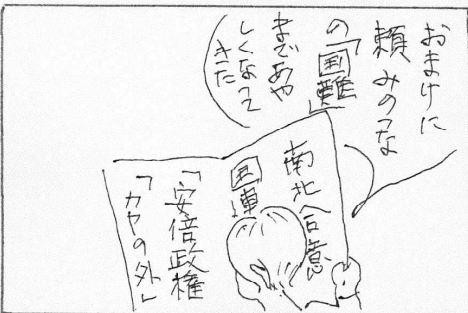 おまけに
頼みのつな
の「国難」
まであや
しくなって
きた
南北合意
「安倍政権
「カヤの外」